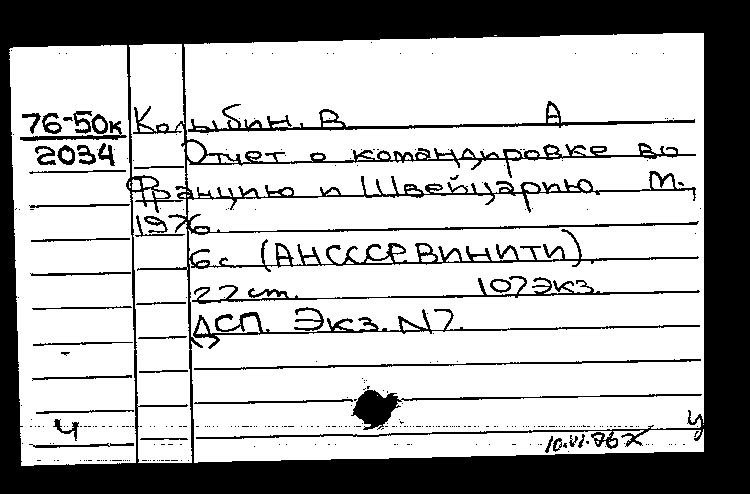 76-50к Колыбин. В А
2034 Отчет о командировке во
Францию и Швейцарию. М.,
1976.
6с (АНСССР.ВИНИТИ).
22 ст. 107экз.
ДСП. Экз. N7.
Ч У
10.VI.76